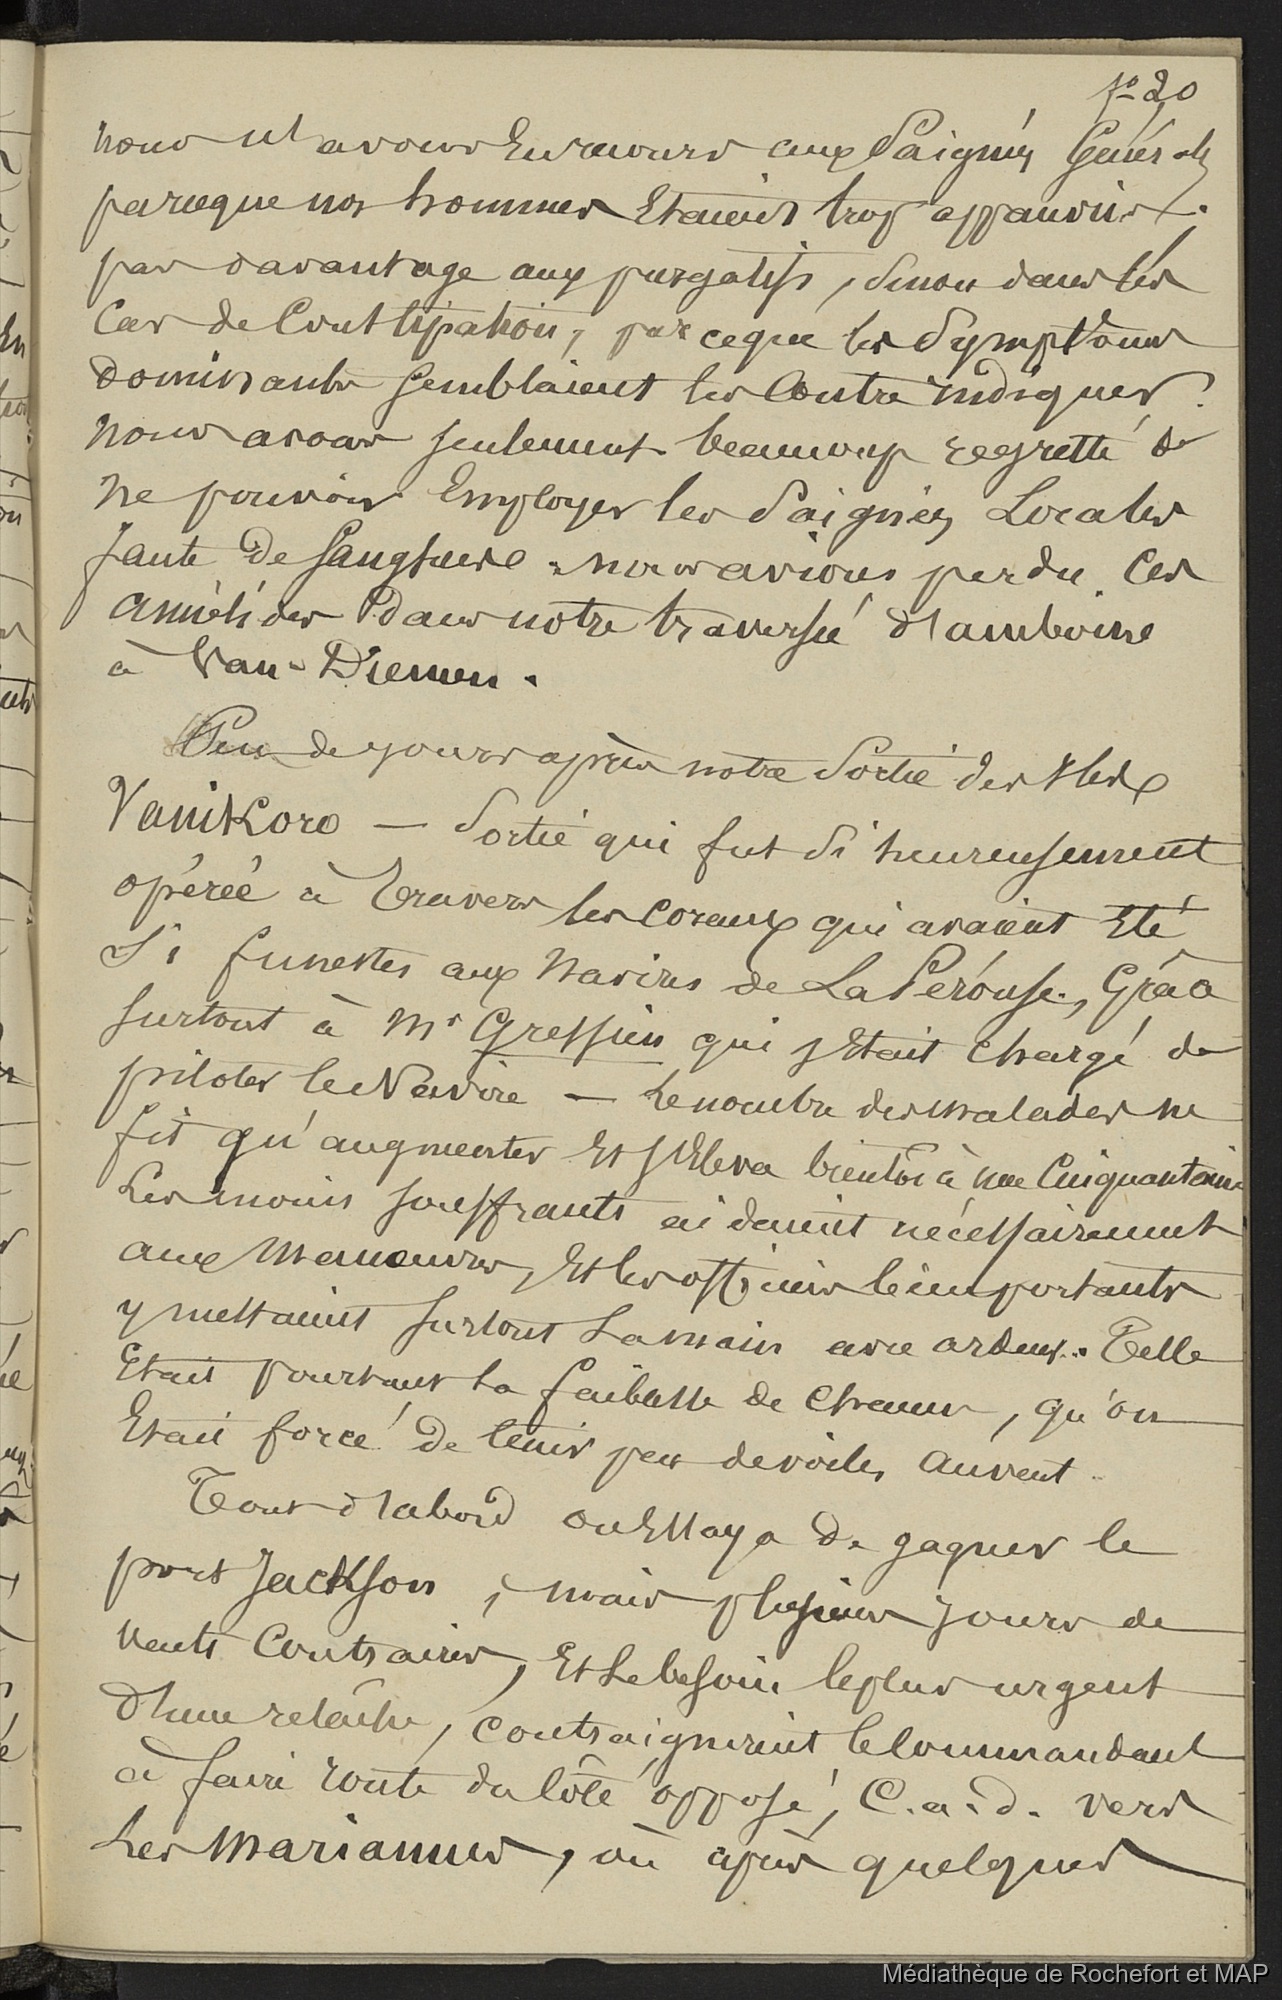 fo 20
nous n'avons Eu recours aux Saignées Générales
parceque nos hommes Etaient trop appauvris
pas davantage aux purgatifs, Sinon dans les
Cas de Constipation, parceque les Symptômes
dominants Semblaient les Contre indiquer.
Nous avons seulement beaucoup regretté de
ne pouvoir Employer les Saignées Locales
faute de Sangsues. nous avions perdu Ces
annélides dans notre traversée d'amboine
à Van-Diemen.
Peu de jours après notre Sortie des Iles
Vanikoro — Sortie qui fut Si heureusement
opérée à Travers les coraux qui avaient Eté
Si funestes aux Navires de La Pérouse, Grâce
surtout à Mr Gressien qui s'Etait chargé de
piloter le Navire — Le nombre des malades ne
fit qu'augmenter Et s'Eleva bientôt à une Cinquantaine
Les moins souffrants aidaient nécessairement
aux Manoeuvres, Et les officiers bien portants
y mettaient Surtout La main avec ardeur. Telle
Etait pourtant la faiblesse de chacun, qu'on
Etait forcé de tenir peu de voiles au vent.
Tout d'abord on Essaya de gagner le
port Jackson, mais plusieurs jours de
Vents Contraires, Et Le besoin le plus urgent
d'une relâche, contraignirent le Commandant
à faire route du Côté opposé, C.a.d. vers
Les Mariannes, où après quelques
Médiathèque de Rochefort et MAP